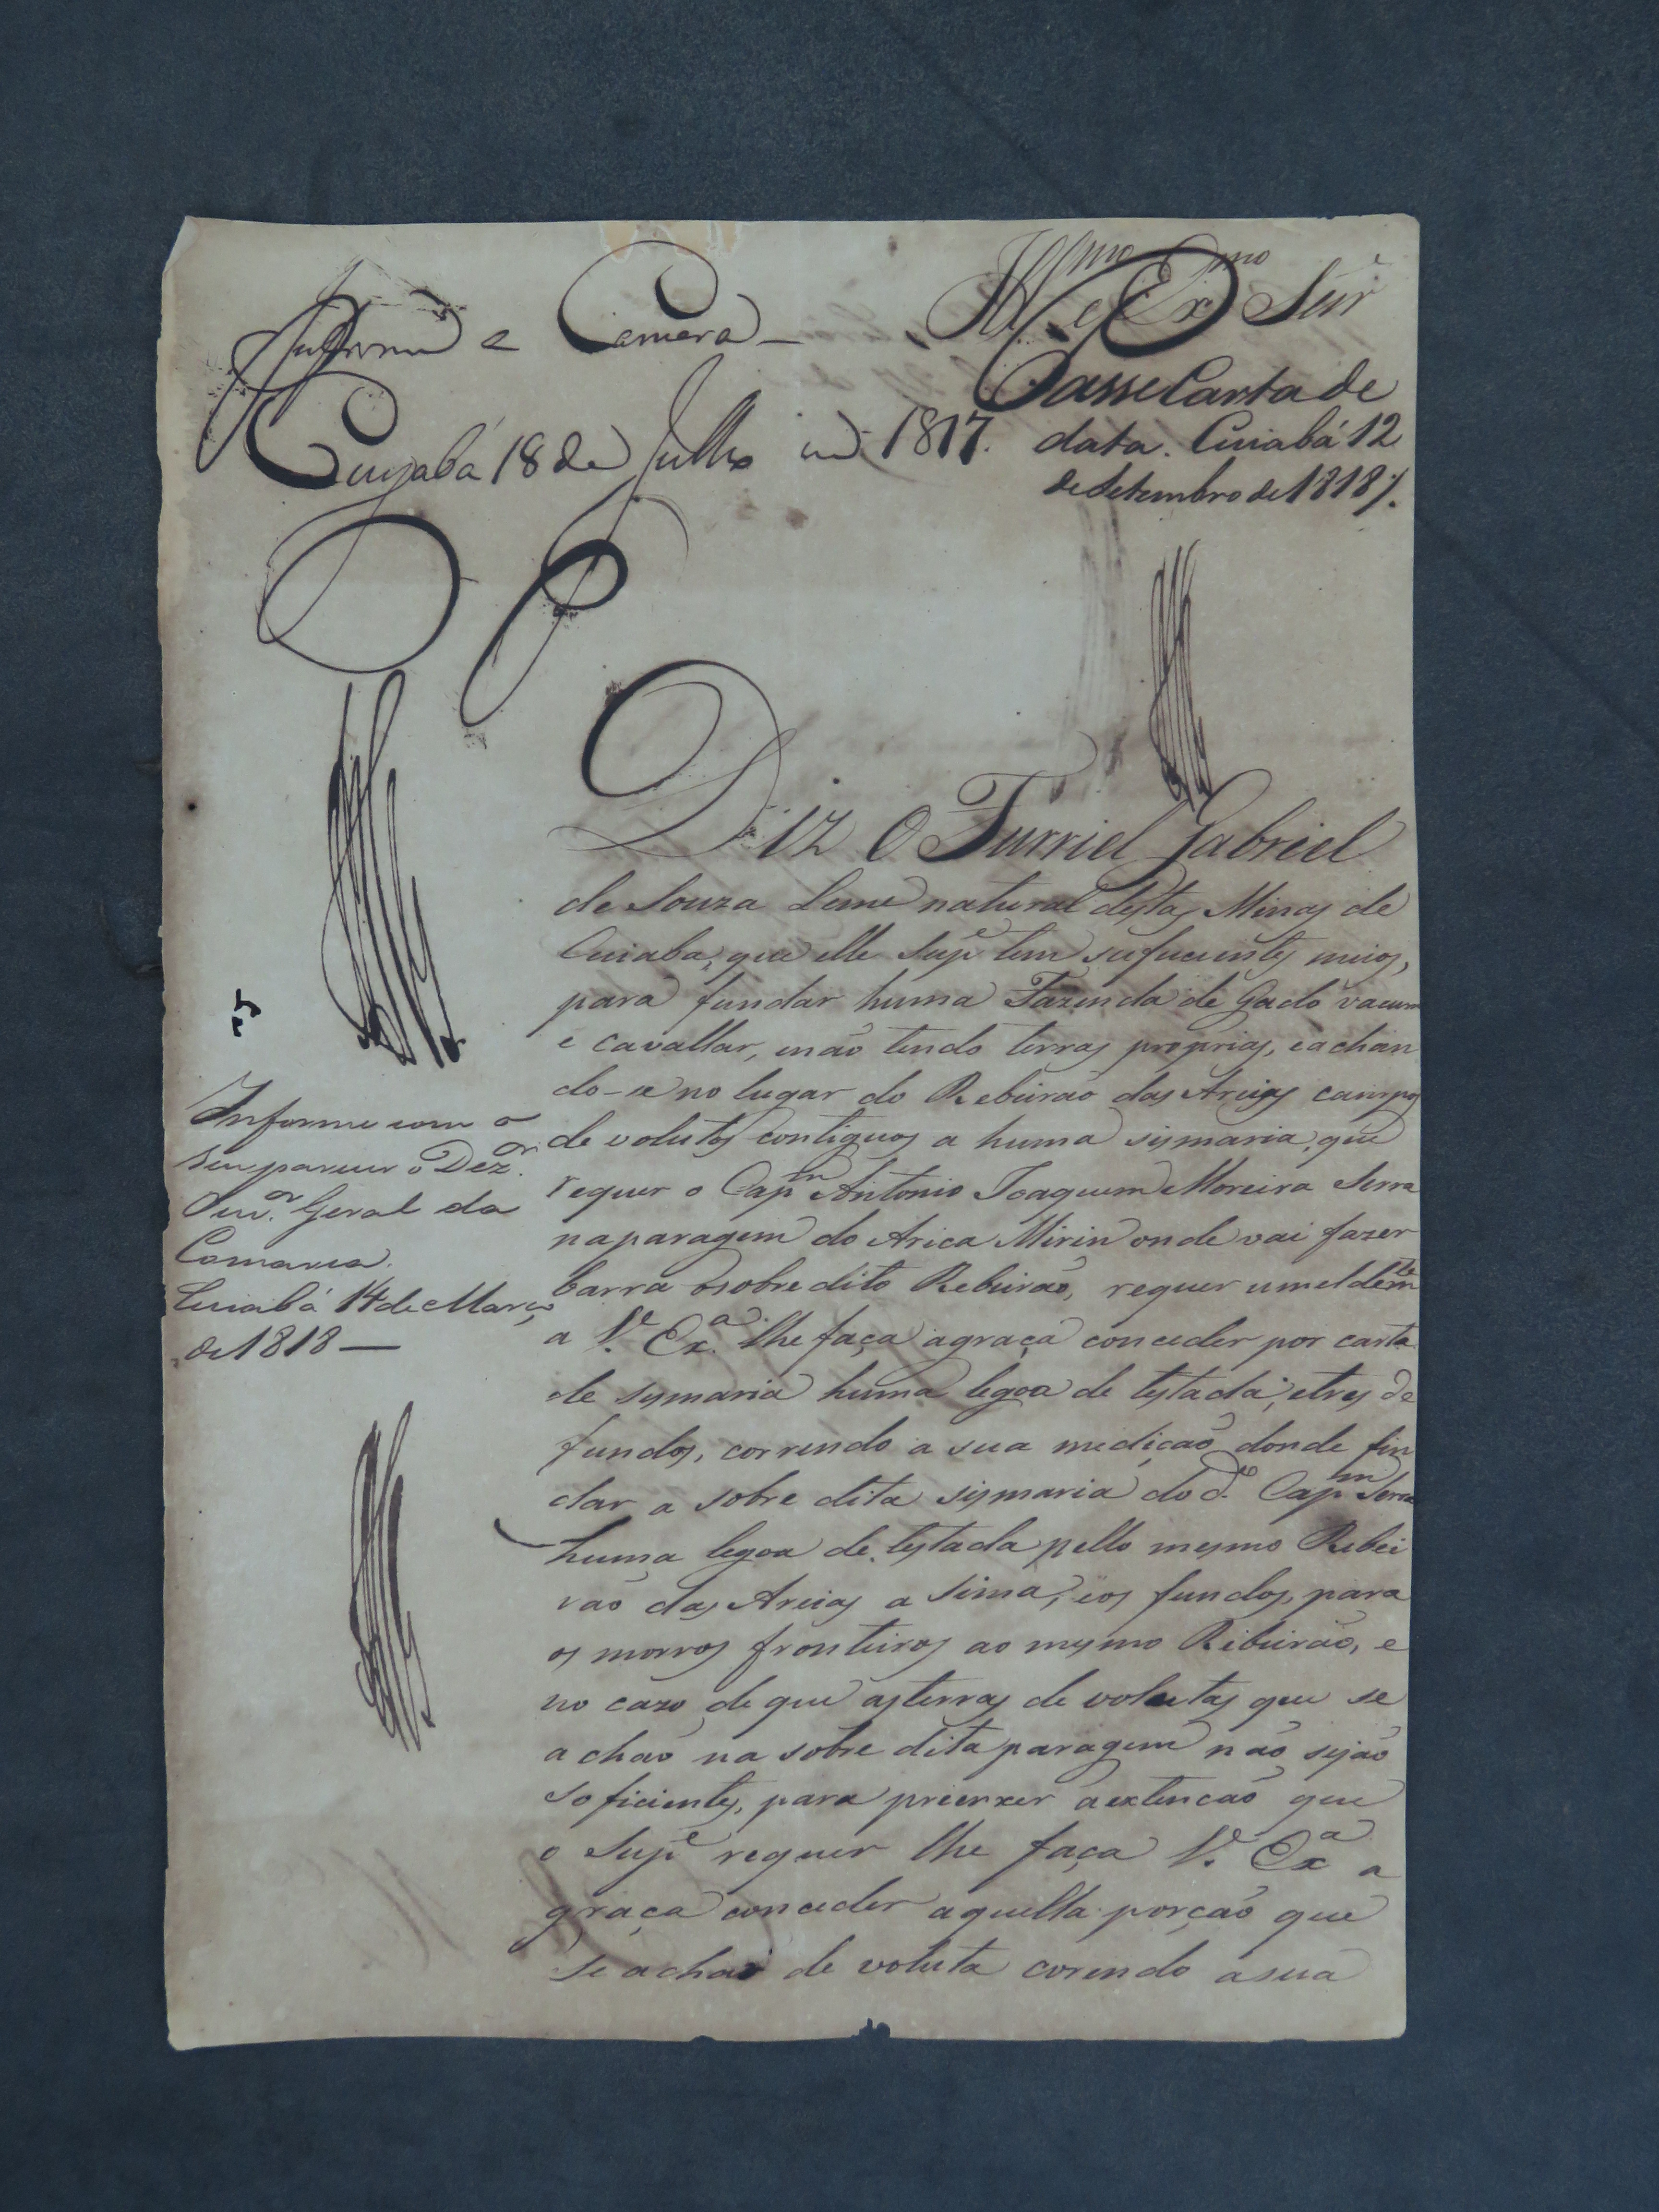 Informe a Camera
Cuyabá 18 de Julho de 1817.
Illmo e Exmo Senr
Passe Carta de
data. Cuiabá 12
de Setembro de 1818
Diz o Furriel Gabriel
de Souza Leme natural destas Minas de
Cuiaba, que elle Supe tem suficientes meios,
para fundar huma Fazenda de Gado vacum
e cavallar, e não tendo terras proprias, e achan
do-se no lugar do Rebeirão das Areias campos
de volutos contiguos a huma sismaria, que
requer o Capm Antonio Joaquem Moreira Serra
na paragem do Arica Mirin onde vai fazer
barra o sobre dito Rebeirão, requer umeldemte
a V. Exa. lhe faça a graça conceder por carta
de symaria huma legoa de testada, e tres de
fundos, correndo a sua medição donde fin
dar a sobre dita sismaria do do. Capm Serra
huma legoa de testada pello mesmo Rebei
rão das Areias a sima, e os fundos, para
os morros fronteiros ao mesmo Ribeirão, e
no cazo de que as terras de volutas que se
a chão na sobre dita paragem não sejão
soficientes, para preenxer a extencão que
o Supe requer lhe faça V. Exa a
graça conceder aquella porção que
se achar de voluta corendo a sua
Informe com o
seu parecer o Dezor.
Ouvor. Geral da
Comarca.
Cuiabá 14 de Março
de 1818 —